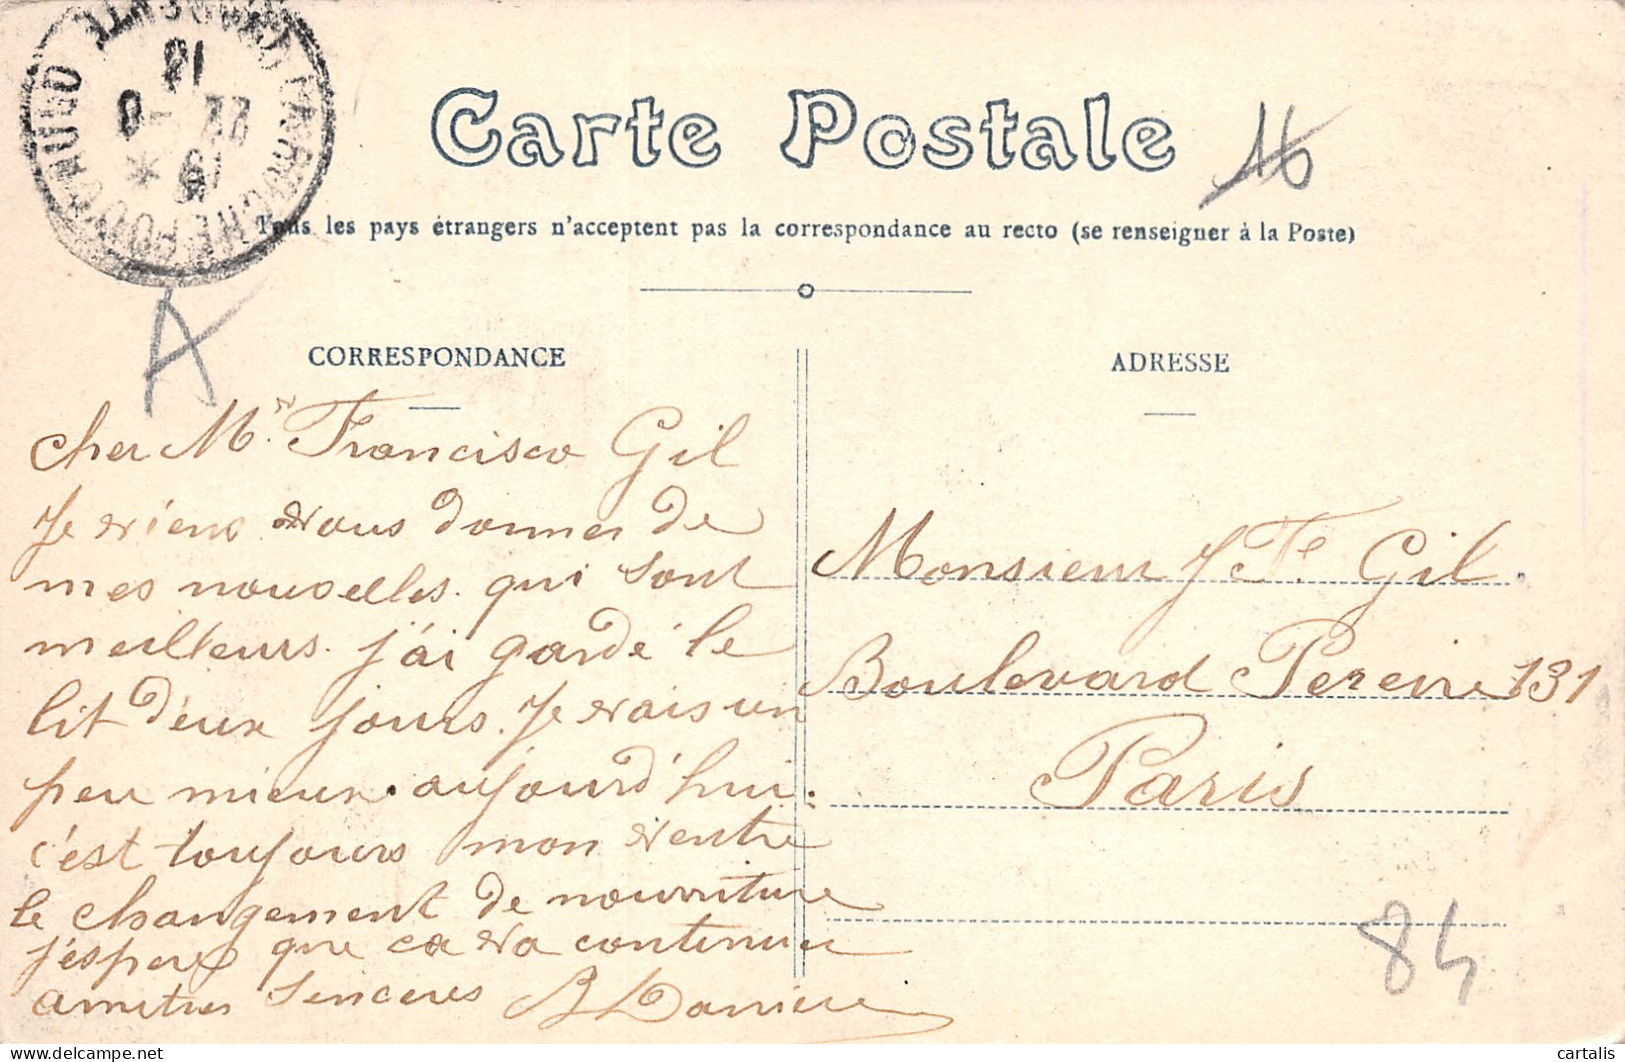 Carte Postale
16
Tous les pays étrangers n'acceptent pas la correspondance au recto (se renseigner à la Poste)
A
CORRESPONDANCE
cher Mr. Francisco Gil
Je viens vous donner de
mes nouvelles. qui sont
meilleurs. j'ai gardé le
lit deux jours. Je vais un
peu mieux. aujourd'hui.
c'est toujours mon ventre
le changement de nourriture
j'espere que ca va continuer
amities senceres B
ADRESSE
Monsieur J Fe Gil.
Boulevard Pereire 131
Paris
84
cartalis